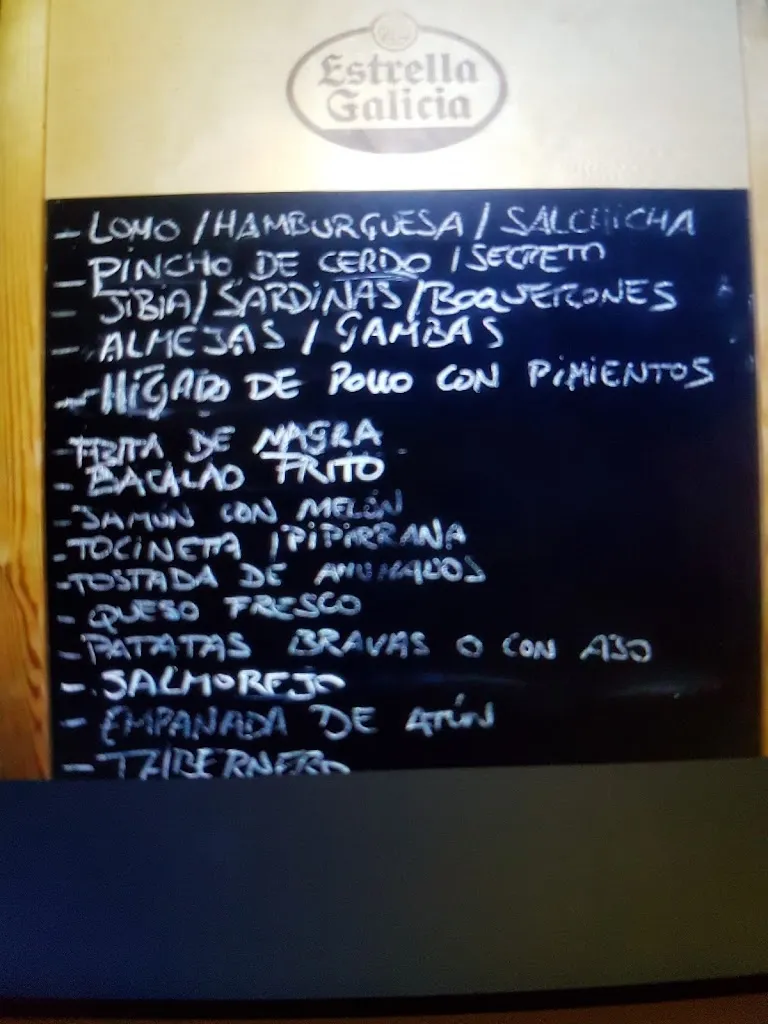 Estrella
Galicia
- LOMO / HAMBURGUESA / SALCHICHA
- PINCHO DE CERDO / SECRETO
- JIBIA / SARDINAS / BOQUERONES
- ALMEJAS / GAMBAS
- HÍGADO DE POLLO CON PIMIENTOS
- FRITA DE MAGRA
- BACALAO FRITO
- JAMÓN CON MELÓN
- TOCINETA / PIPIRRANA
- TOSTADA DE AHUMADOS
- QUESO FRESCO
- PATATAS BRAVAS O CON AJO
- SALMOREJO
- EMPANADA DE ATÚN
- TABERNERO